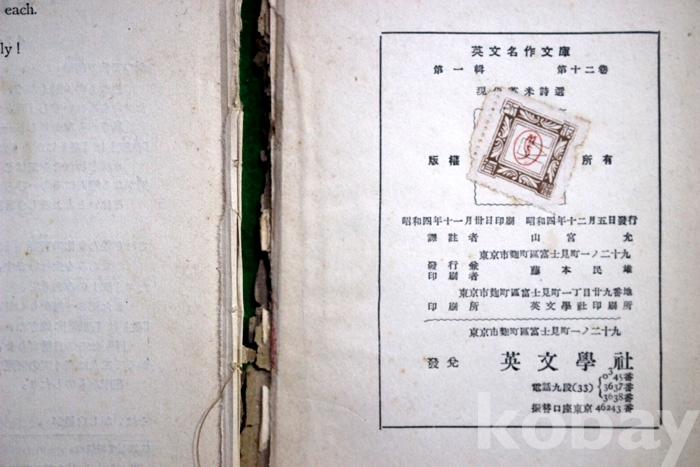 each.
ly!
英文名作文庫
第一輯 第十二卷
現代英米詩選
版權 所有
昭和四年十一月卅日印刷 昭和四年十二月五日發行
譯註者 山宮允
東京市麴町區富士見町一ノ二十九
發行兼印刷者 藤本民雄
東京市麴町區富士見町一丁目廿九番地
印刷所 英文學社印刷所
東京市麴町區富士見町一ノ二十九
發兌 英文學社
電話九段(33)
0345番
3637番
3638番
振替口座東京46243番
kobay